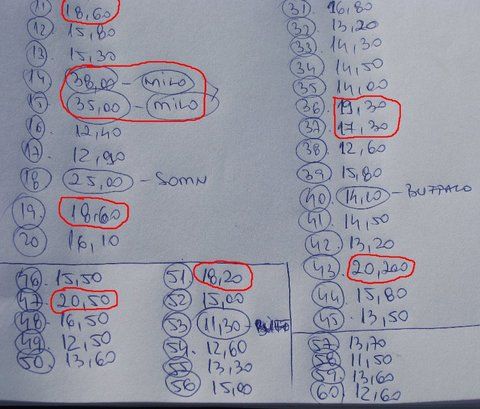 11. 18,60
12. 15,80
13. 15,30
14 38,00 - MILO
15 35,00 - MILO
16. 12,40
17. 12,90
18 25,00 - SOMN
19. 18,60
20 16,10
31. 16,80
32. 13,20
33. 14,30
34 14,50
35 14,00
36 19,30
37. 17,30
38 12,60
39 15,80
40. 14,20 - BUFFALO
41 14,50
42. 13,20
43. 20,200
44. 15,80
45. 13,50
46. 15,50
47. 20,50
48. 16,50
49 12,50
50. 13,60
51. 18,20
52 15,00
53 11,30
54. 12,60
55 13,30
56 15,00
57 13,70
58 11,50
59. 13,60
60) 12,60